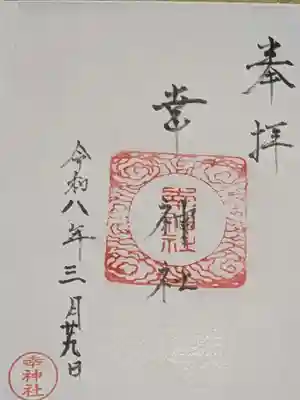 奉拝
幸神社
幸神社
令和八年三月廿九日
幸神社